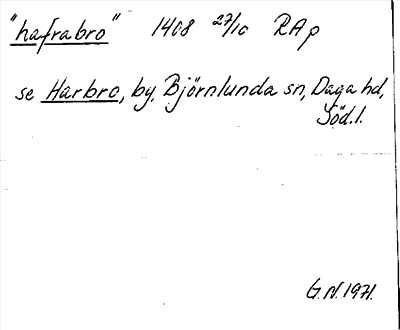 "hafrabro" 1408 27/10 RAp
se Harbro, by, Björnlunda sn, Daga hd,
Söd.l.
G.N. 1971.